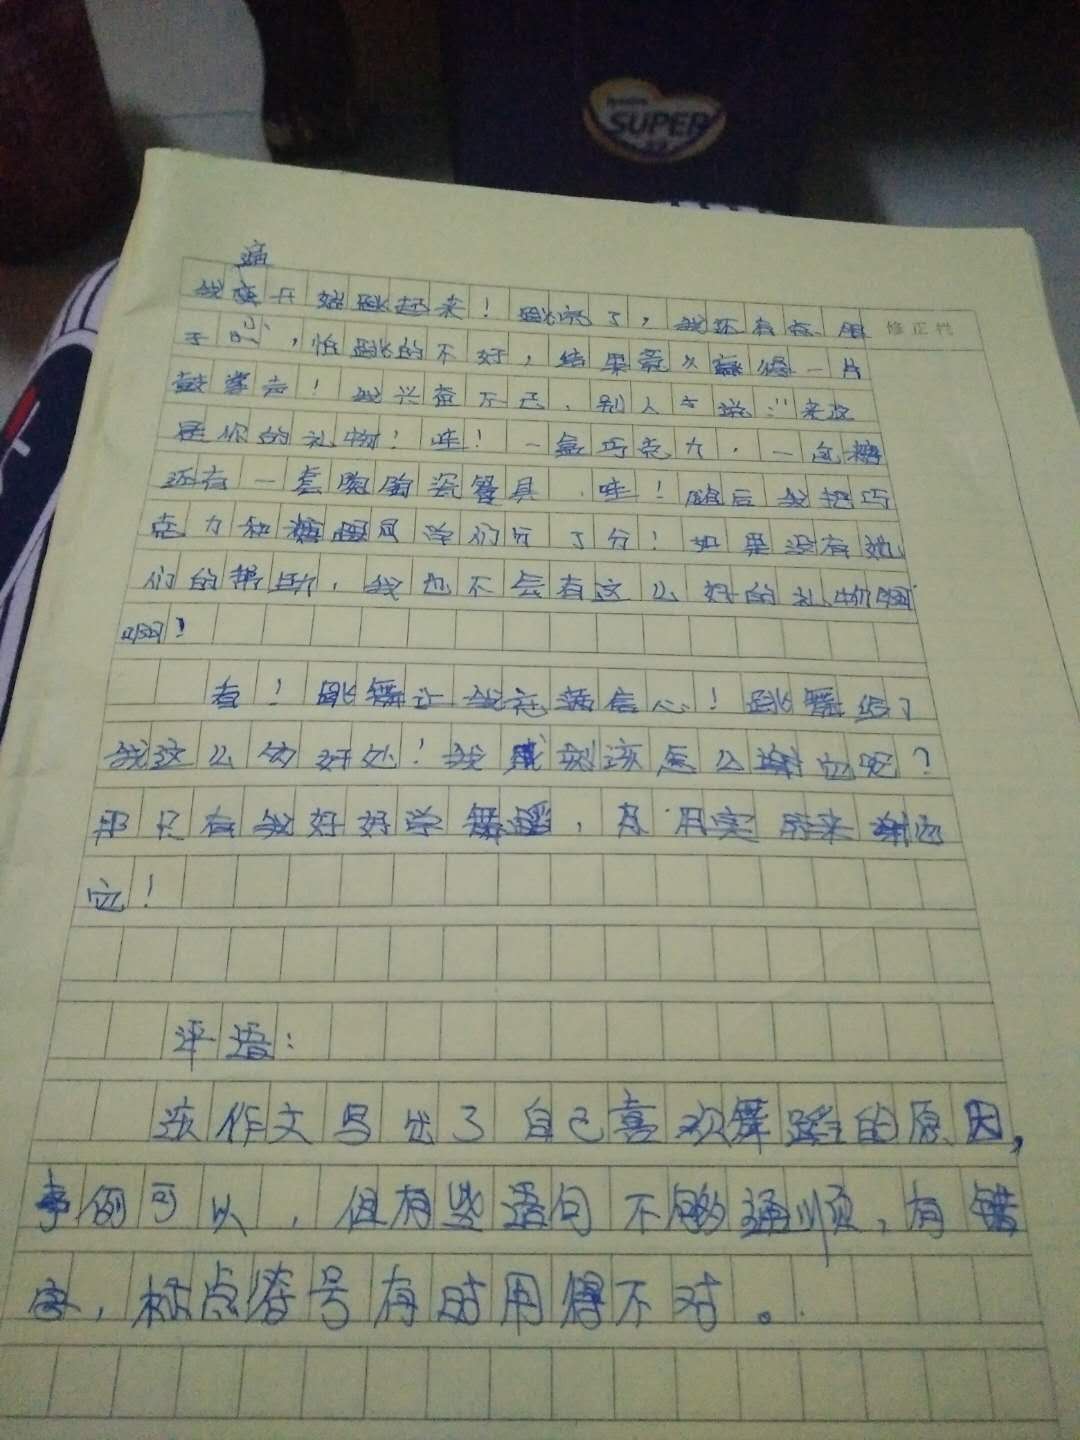 SUPER
修正栏
我便开始跳起来！跳完了，我还有点胆
于小，怕跳的不好，结果竟久赢得一片
鼓掌声！我兴奋不已，别人大说："来这
是你的礼物！哇！一盒巧克力，一包糖
还有一套陶瓷餐具，哇！随后我把巧
克力和糖跟同学们分了分！如果没有她
们的帮助，我也不会有这么好的礼物
啊！
看！跳舞让我充满信心！跳舞给了
我这么多好处！我该怎么谢它呢？
那只有我好好学舞蹈，用实际来谢
它！
评语：
该作文写出了自己喜欢舞蹈的原因，
事例可以，但有些语句不够通顺，有错
字，标点符号有时用得不对。